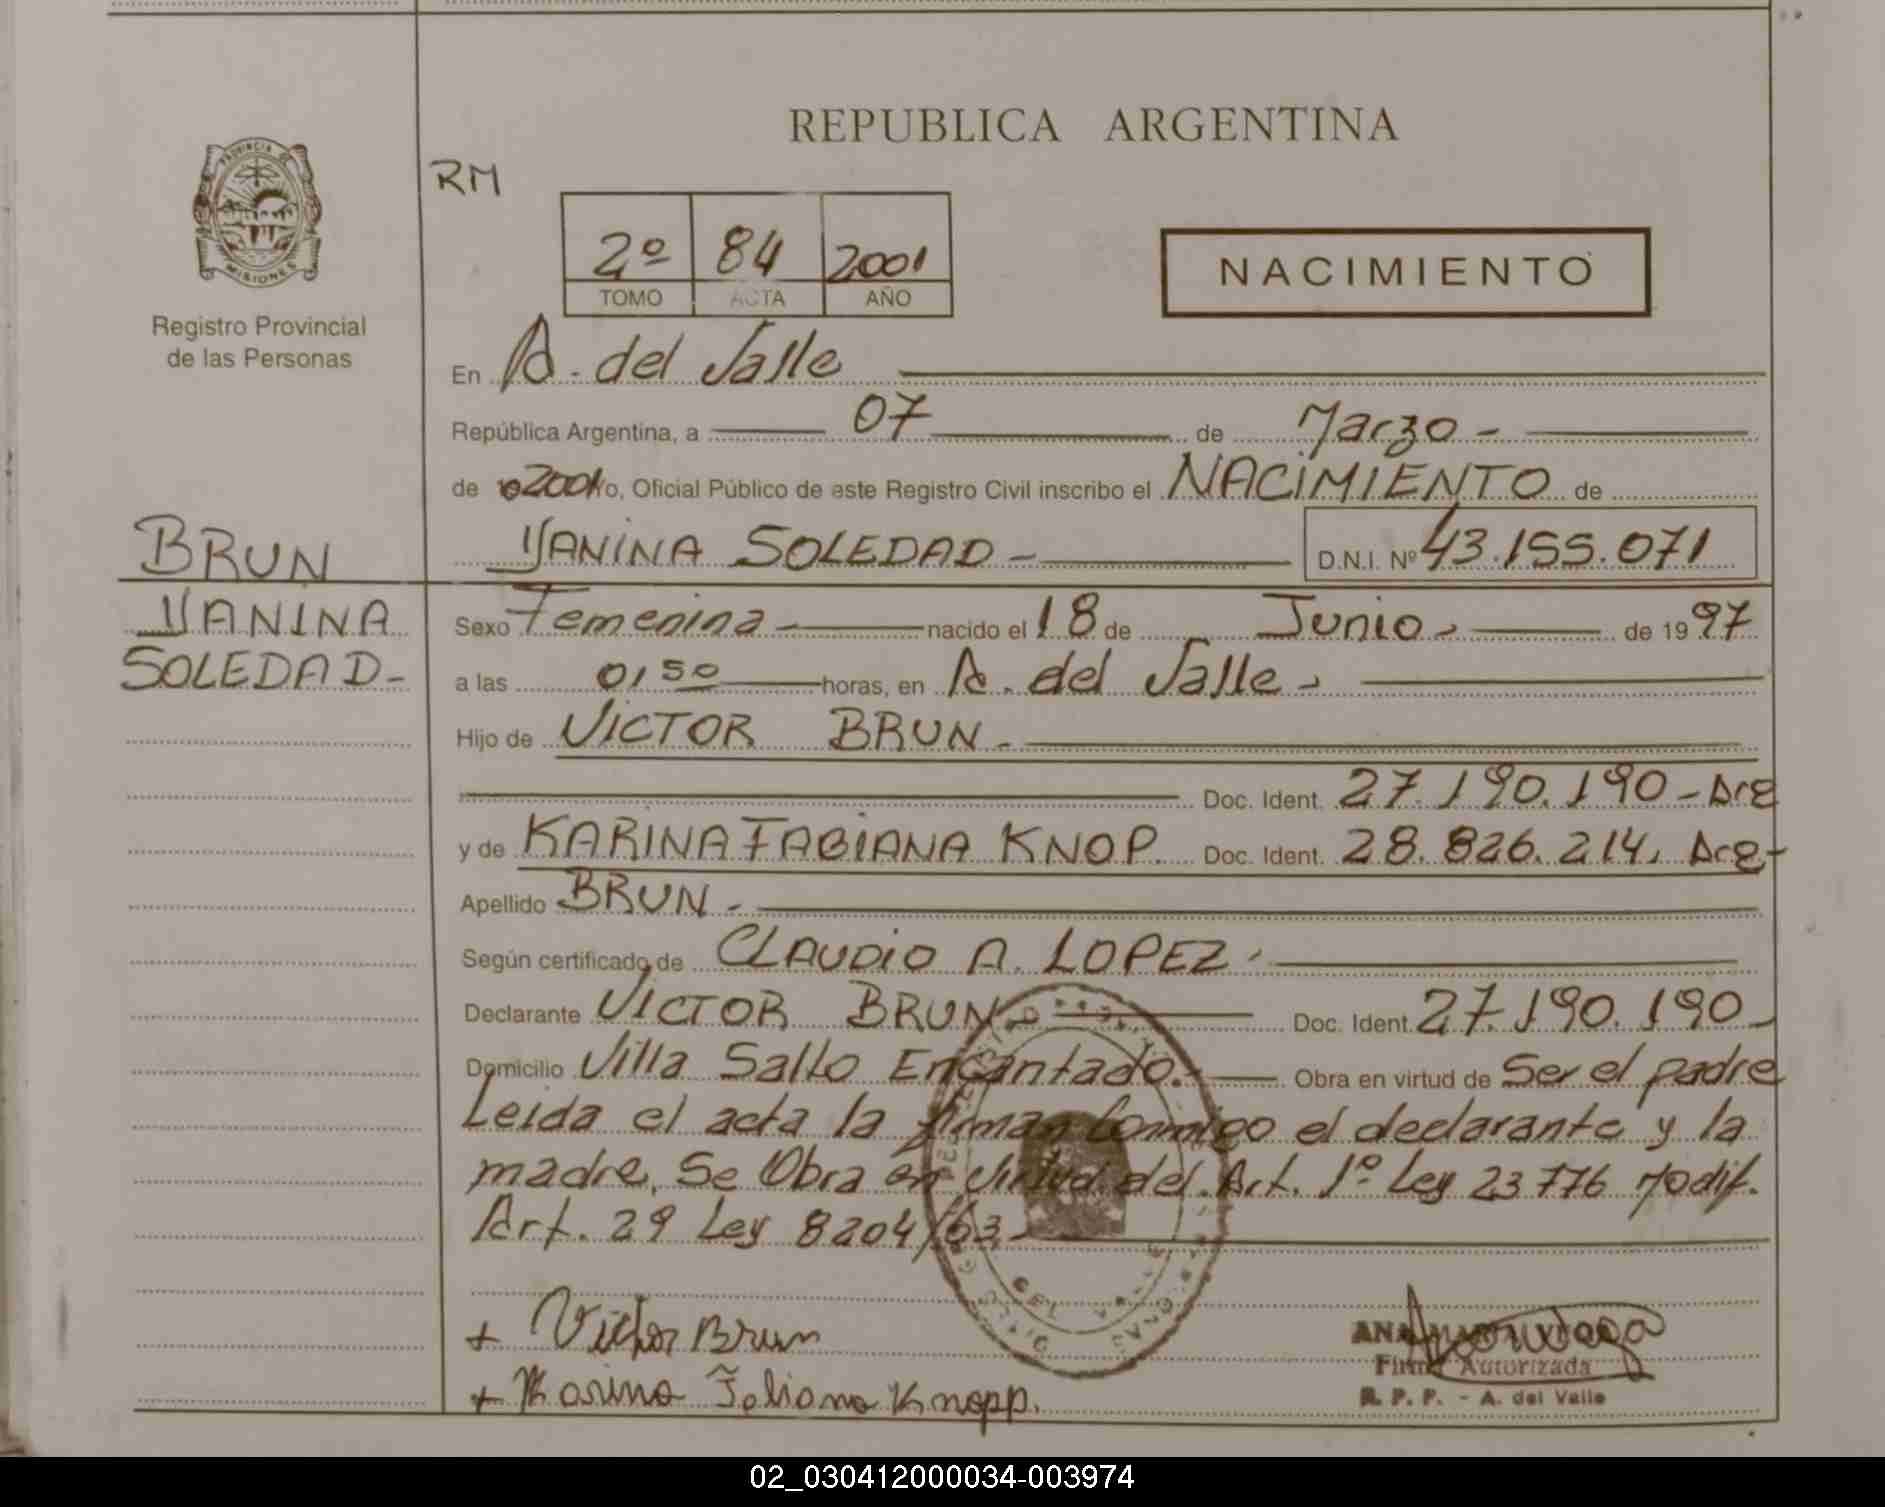 REPUBLICA ARGENTINA
PROVINCIA DE
MISIONES
Registro Provincial
de las Personas
RM
2º 84 2001
TOMO ACTA AÑO
NACIMIENTO
En A. del Valle
República Argentina, a 07 de Marzo -
de 2001 yo, Oficial Público de este Registro Civil inscribo el NACIMIENTO de
BRUN
VANINA SOLEDAD - D.N.I. Nº 43.155.071
VANINA
SOLEDAD-
Sexo Femenina - nacido el 18 de Junio - de 1997
a las 01 50 horas, en A. del Valle -
Hijo de VICTOR BRUN -
Doc. Ident. 27.190.190 - Arg
y de KARINA FABIANA KNOP. Doc. Ident. 28.826.214, Arg-
Apellido BRUN -
Según certificado de CLAUDIO A. LOPEZ -
Declarante VICTOR BRUN Doc. Ident. 27.190.190 -
Domicilio Villa Salto Encantado. - Obra en virtud de Ser el padre
Leida el acta la firman Conmigo el declarante y la
madre, Se Obra en virtud del Art. 1º Ley 23776 Modif.
Art. 29 Ley 8204/63 -
+ Victor Brun
+ Karina Fabiana Knopp.
ANA MARIA
Firma Autorizada
R. P. P. - A. del Valle
02_030412000034-003974